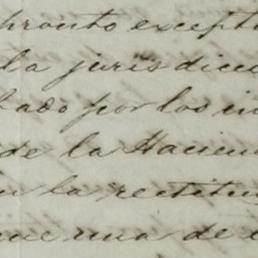 pronto except
la jurisdicc
bado por los in
de la Hacien
n la rectitu
que una de